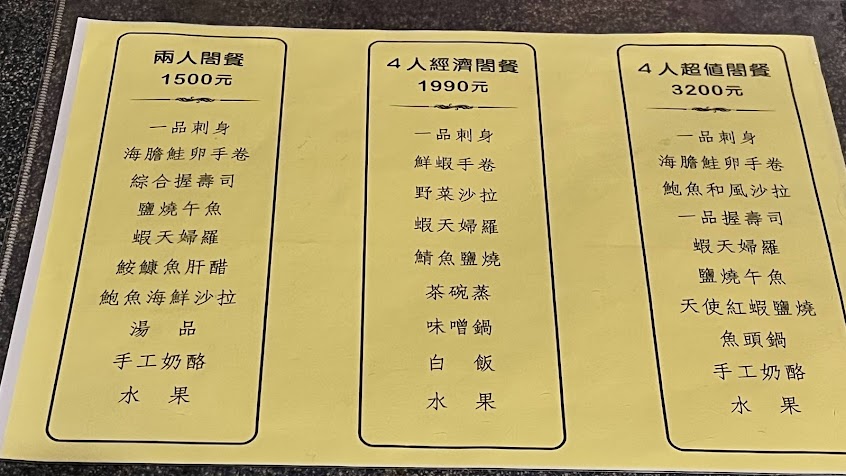 兩人閤餐
1500元
一品刺身
海膽鮭卵手卷
綜合握壽司
鹽燒午魚
蝦天婦羅
鮟鱇魚肝醋
鮑魚海鮮沙拉
湯 品
手工奶酪
水 果
4人經濟閤餐
1990元
一品刺身
鮮蝦手卷
野菜沙拉
蝦天婦羅
鯖魚鹽燒
茶碗蒸
味噌鍋
白 飯
水 果
4人超值閤餐
3200元
一品刺身
海膽鮭卵手卷
鮑魚和風沙拉
一品握壽司
蝦天婦羅
鹽燒午魚
天使紅蝦鹽燒
魚頭鍋
手工奶酪
水 果